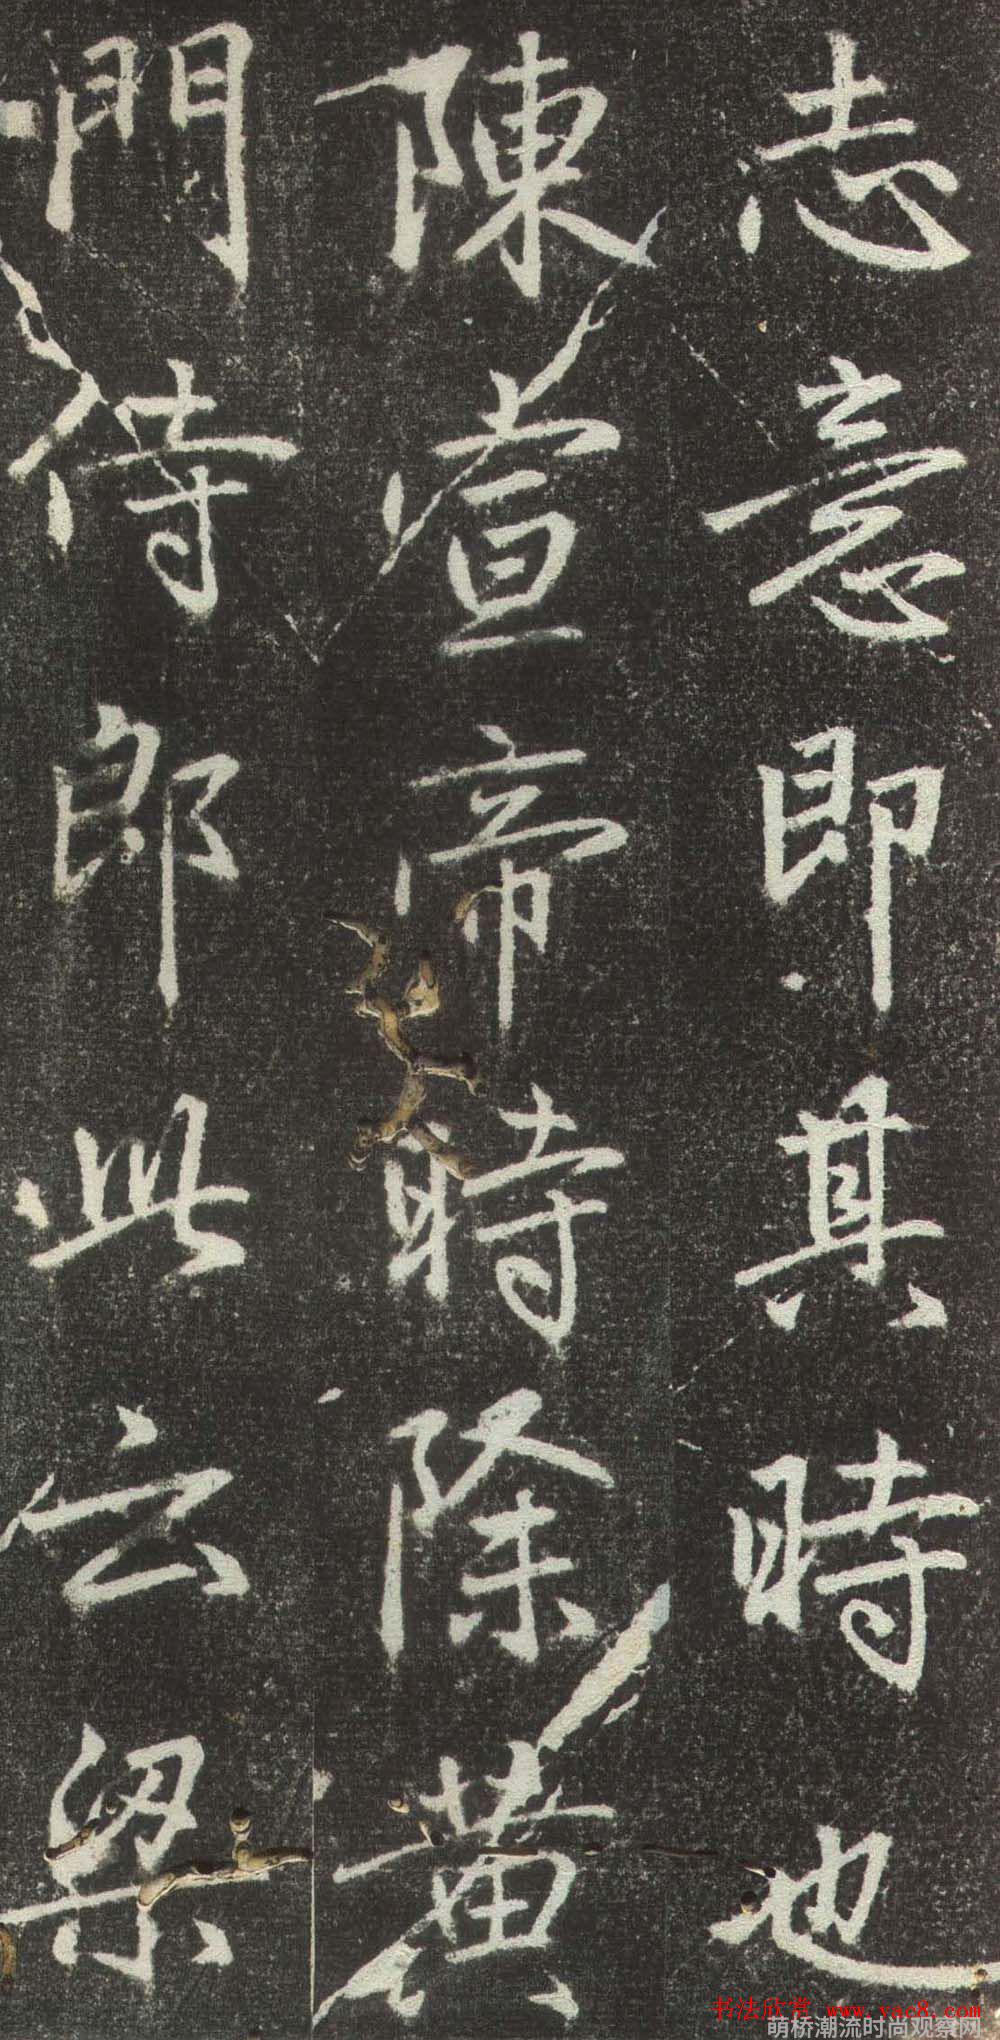 志意即其時也
陳宣帝時除黄
門侍郎此云梁
书法欣赏 www.yac8.com
萌桥潮流时尚观察网